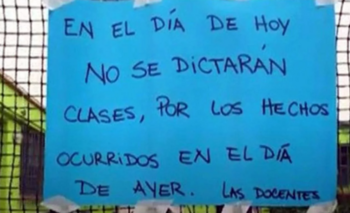 EN EL DÍA DE HOY
NO SE DICTARÁN
CLASES, POR LOS HECHOS
OCURRIDOS EN EL DÍA
DE AYER. LAS DOCENTES